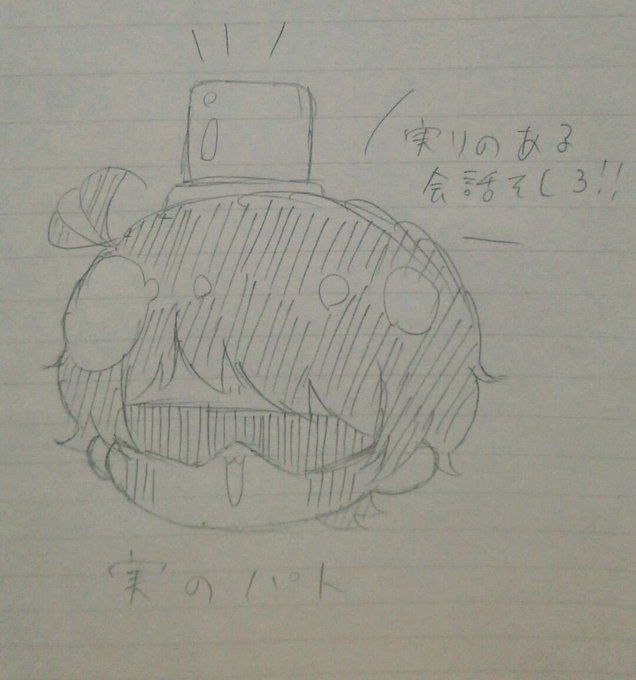 実りのある
会話をしろ!!
実のパト